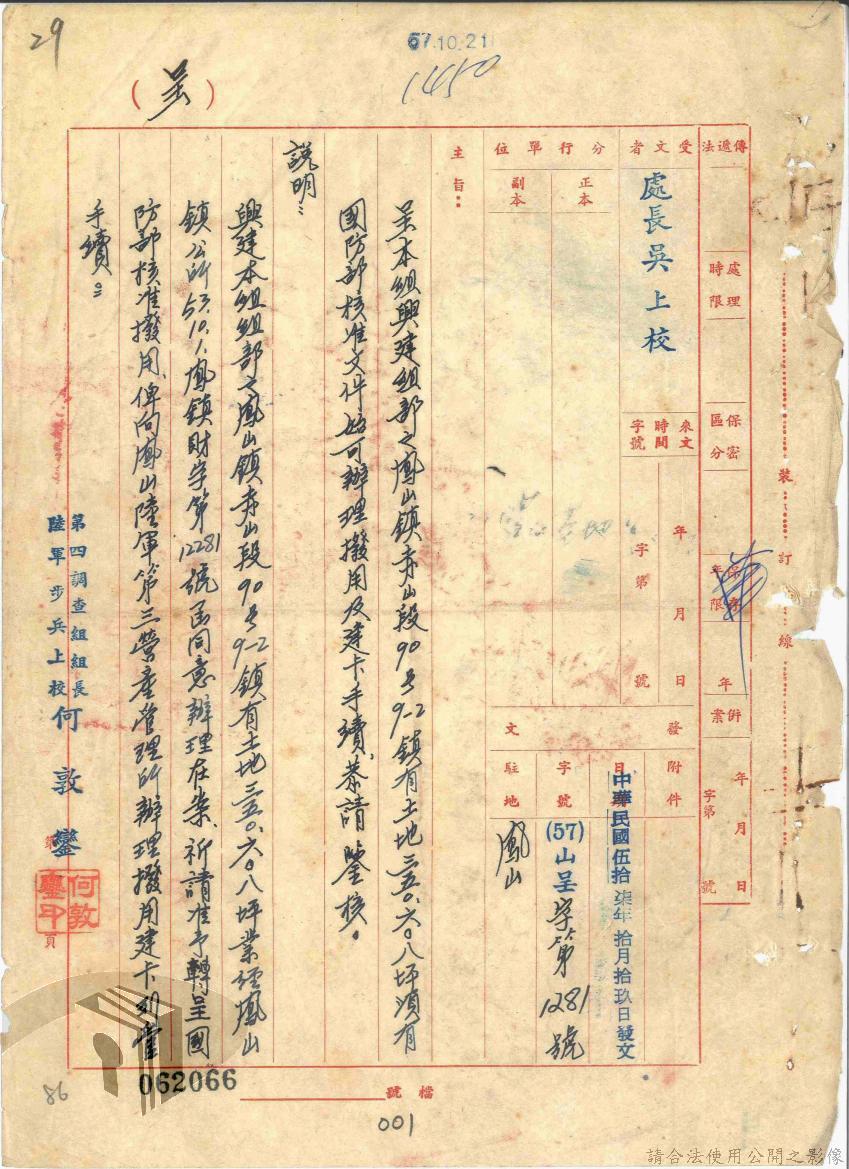 29
57.10.21
1450
（呈）
傳遞法
處理時限
保密區分
保存年限
年
併案
年月日
字第號
受文者
處長吳上校
來文時間字號
年月日
字第號
分行單位
正本
副本
發文
附件
日期
中華民國伍拾柒年拾月拾玖日發文
字號
(57)山呈字第1281號
駐地
鳳山
主旨：
呈本組興建組部之鳳山鎮赤山段90号9-2鎮有土地三五〇.六〇八坪須有
國防部核准文件始可辦理撥用及建卡手續、恭請鑒核。
說明：
興建本組組部之鳳山鎮赤山段90号9-2鎮有土地三五〇.六〇八坪業經鳳山
鎮公所57.10.1.鳳鎮財字第12281號函同意辦理在案、祈請准予轉呈國
防部核准撥用、俾向鳳山陸軍第三營產管理所辦理撥用建卡列管
手續。
第四調查組組長
陸軍步兵上校
何敦鑾
何敦鑾印
第頁
裝訂線
檔號
062066
001
86
請合法使用公開之影像